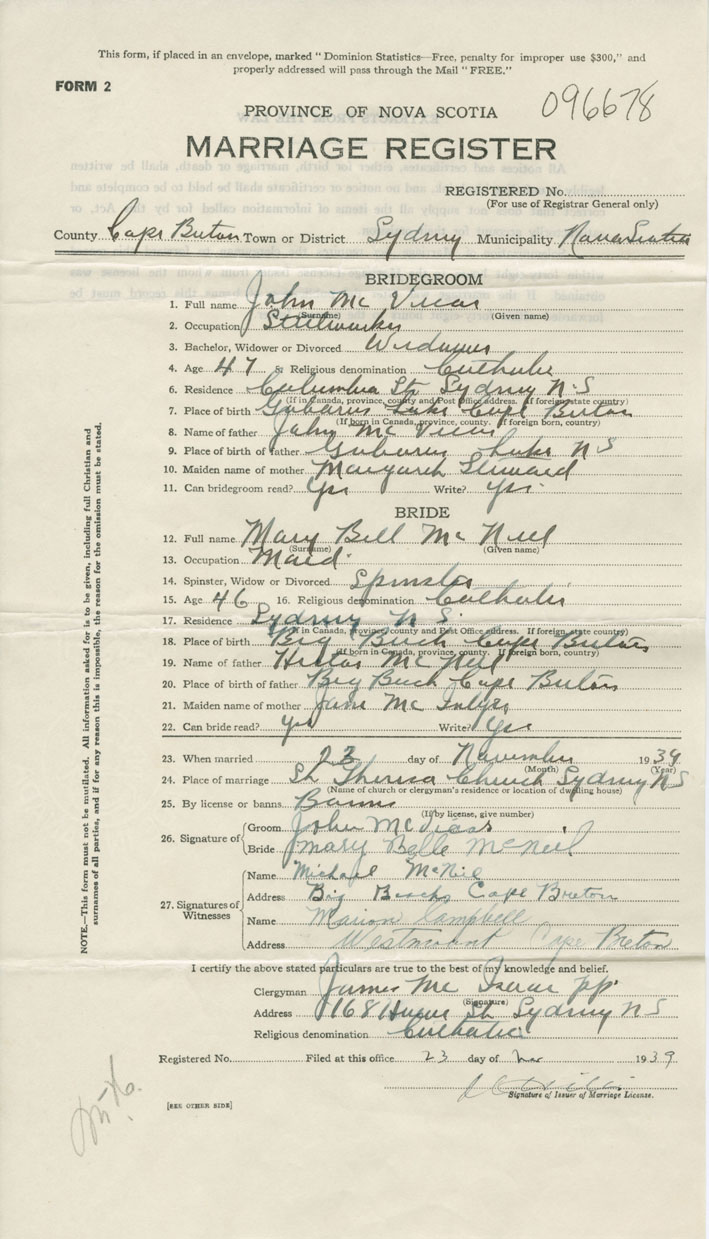 This form, if placed in an envelope, marked "Dominion Statistics—Free, penalty for improper use $300," and
properly addressed will pass through the Mail "FREE."
FORM 2
096678
PROVINCE OF NOVA SCOTIA
MARRIAGE REGISTER
REGISTERED No.
(For use of Registrar General only)
County Cape Breton Town or District Sydney Municipality Nova Scotia
BRIDEGROOM
1. Full name John Mc Vicar
(Surname) (Given name)
2. Occupation Steelworker
3. Bachelor, Widower or Divorced Widower
4. Age 47 5. Religious denomination Catholic
6. Residence Columbia St Sydney N.S
(If in Canada, province, county and Post Office address. If foreign state country)
7. Place of birth Gabarus Lake Cape Breton
(If born in Canada, province, county. If foreign born, country)
8. Name of father John Mc Vicar
9. Place of birth of father Gabarus Lake N S
10. Maiden name of mother Margaret Steward
11. Can bridegroom read? Yes Write? Yes
BRIDE
12. Full name Mary Bell Mc Neil
(Surname) (Given name)
13. Occupation Maid
14. Spinster, Widow or Divorced Spinster
15. Age 46 16. Religious denomination Catholic
17. Residence Sydney N S
(If in Canada, province, county and Post Office address. If foreign state country)
18. Place of birth Big Beach Cape Breton
(If born in Canada, province, county. If foreign born, country)
19. Name of father Hector Mc Neil
20. Place of birth of father Big Beach Cape Breton
21. Maiden name of mother Jane Mc Intyre
22. Can bride read? Yes Write? Yes
23. When married 23 day of November 1939
(Month) (Year)
24. Place of marriage St Theresa Church Sydney N S
(Name of church or clergyman's residence or location of dwelling house)
25. By license or banns Banns
(If by license, give number)
26. Signature of
Groom John McVicar
Bride Mary Belle McNeil
27. Signatures of Witnesses
Name Michael McNeil
Address Big Beach Cape Breton
Name Marion Campbell
Address Westmount Cape Breton
I certify the above stated particulars are true to the best of my knowledge and belief.
Clergyman James Mc Isaac pp
(Signature)
Address 168 St Sydney N S
Religious denomination Catholic
Registered No. Filed at this office 23 day of 1939
Signature of Issuer of Marriage License.
[SEE OTHER SIDE]
NOTE.—This form must not be mutilated. All information asked for is to be given, including full Christian and
surnames of all parties, and if for any reason this is impossible, the reason for the omission must be stated.